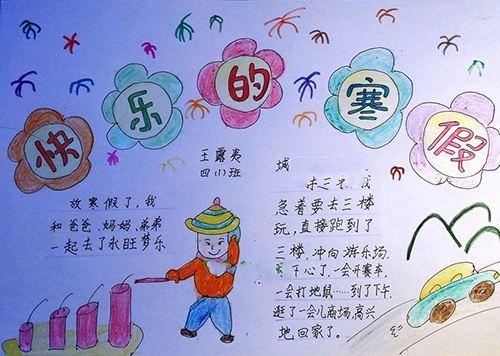 快乐的寒假
王露
四(1)班
放寒假了，我
和爸爸、妈妈、弟弟
一起去了永旺梦乐
城
急着要去三楼
玩，直接跑到了
三楼、冲向游乐场、
下心了、一会开赛车、
一会打地鼠……到了下午、
逛了一会儿商场、高兴
地回家了。